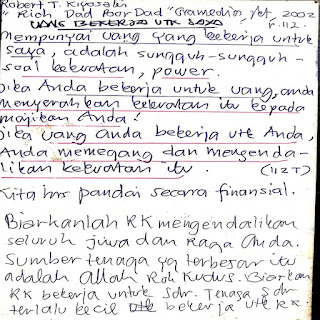 Robert T. Kiyosaki
"Rich Dad Poor Dad" Gramedia Jkt, 2002
UANG BEKERJA UTK SAYA p. 112.
mempunyai uang yang bekerja untuk
saya, adalah sungguh-sungguh
soal kekuatan, power.
Jika Anda bekerja untuk uang, anda
menyerahkan kekuatan itu kepada
majikan Anda!
Jika uang anda bekerja utk Anda,
Anda memegang dan mengenda-
likan kekuatan itu. (112T)
Kita hrs pandai secara finansial.
Biarkanlah RK mengendalikan
seluruh jiwa dan Raga Anda.
Sumber tenaga yg terbesar itu
adalah Allah Roh Kudus. Biarkan
RK bekerja untuk Sdr. Tenaga Sdr
terlalu kecil utk bekerja utk RK